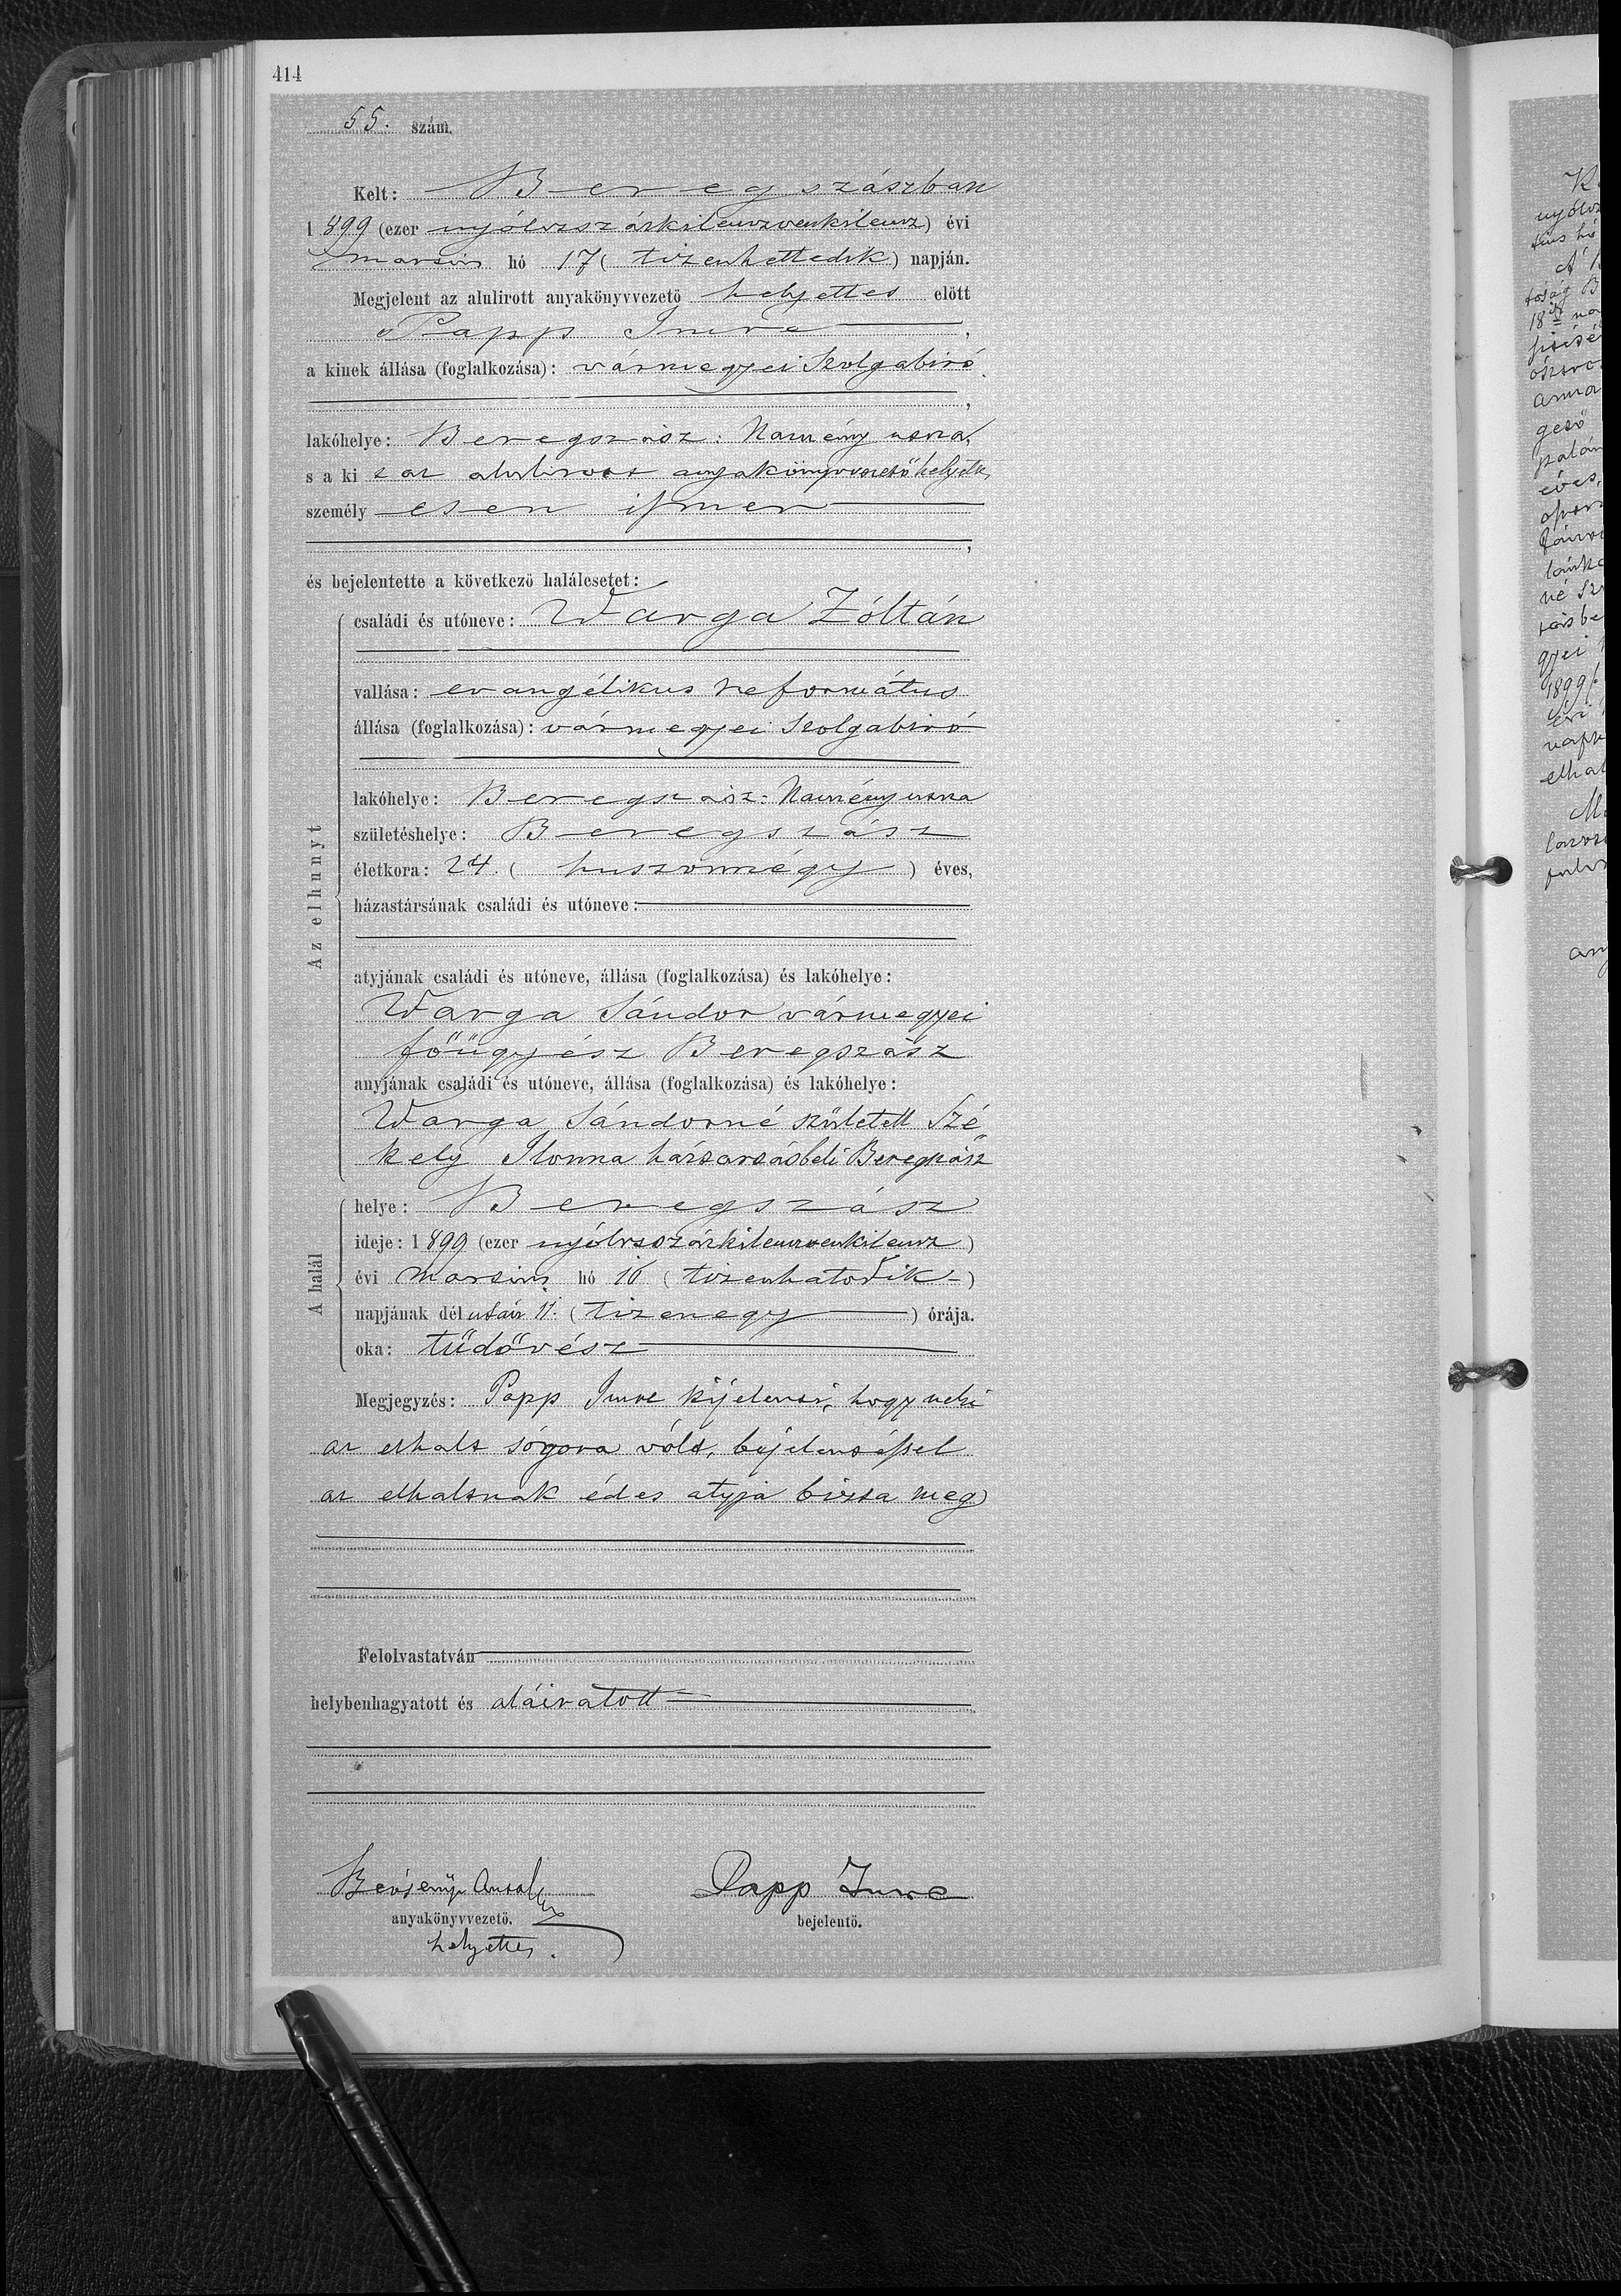 414
55. szám.
Kelt: Beregszászban
1899 (ezer nyólczszázkilenczvenkilencz) évi
marczius hó 17 (tizenhettedik) napján.
Megjelent az alulirott anyakönyvvezető helyettes előtt
Papp Imre,
a kinek állása (foglalkozása): vármegyei szolgabiró
lakóhelye: Beregszász: Namény utcza,
s a ki t az alulirott anyakönyvvezető helyette,
személyesen ismer
,
és bejelentette a következő halálesetet:
Az elhunyt
családi és utóneve: Varga Zóltán
vallása: evangélikus református
állása (foglalkozása): vármegyei szolgabiró
lakóhelye: Beregszász: Namény utcza
születéshelye: Beregszász
életkora: 24. (huszonnégy) éves,
házastársának családi és utóneve:
atyjának családi és utóneve, állása (foglalkozása) és lakóhelye:
Varga Sándor vármegyei
főügyész Beregszász
anyjának családi és utóneve, állása (foglalkozása) és lakóhelye:
Varga Sándorné született Szé
kely Ilonna háztartásbeli Beregszász
A halál
helye: Beregszász
ideje: 1899 (ezer nyólczszázkilenczvenkilencz)
évi marczius hó 16 (tizenhatodik)
napjának délután 11. (tizenegy) órája.
oka: tüdővész
Megjegyzés: Papp Imre kijelenti, hogy neki
az elhalt sógora vólt, bejelentéssel
az elhaltnak édes atyja bizta meg
Felolvastatván
helybenhagyatott és aláiratott
Papp Imre
anyakönyvvezető. bejelentő.
helyettes.